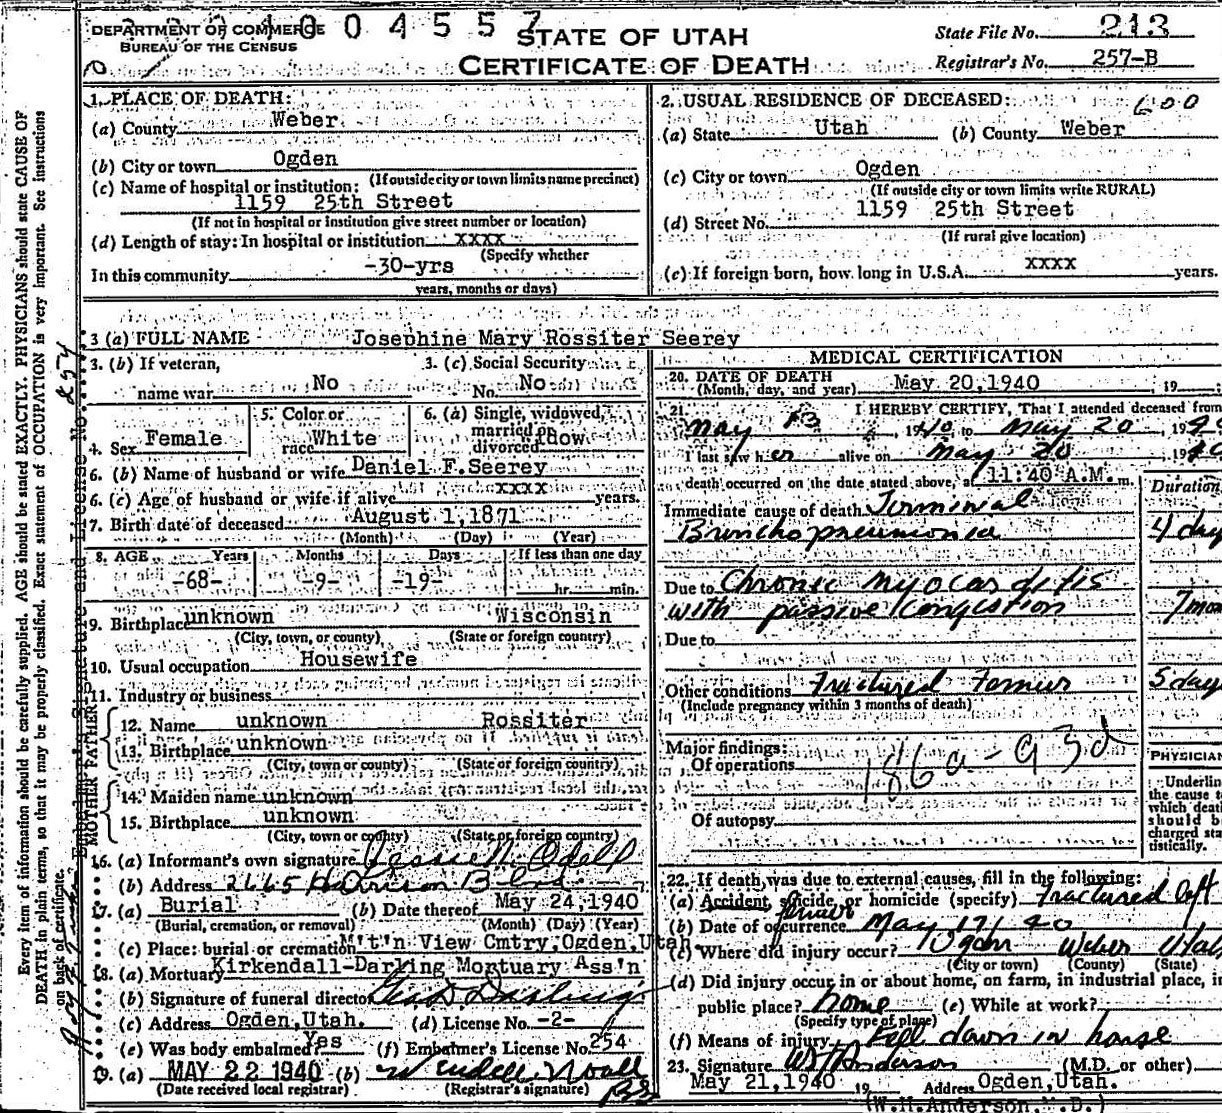 1004557
DEPARTMENT OF COMMERCE
BUREAU OF THE CENSUS
STATE OF UTAH
CERTIFICATE OF DEATH
State File No. 213
Registrar's No. 257-B
Every item of information should be carefully supplied. AGE should be stated EXACTLY. PHYSICIANS should state CAUSE OF
DEATH in plain terms, so that it may be properly classified. Exact statement of OCCUPATION is very important. See instructions
on back of certificate.
1. PLACE OF DEATH:
(a) County Weber
(b) City or town Ogden
(If outside city or town limits name precinct)
(c) Name of hospital or institution:
1159 25th Street
(If not in hospital or institution give street number or location)
(d) Length of stay: In hospital or institution xxxx
(Specify whether
In this community -30-yrs
years, months or days)
2. USUAL RESIDENCE OF DECEASED: 600
(a) State Utah (b) County Weber
(c) City or town Ogden
(If outside city or town limits write RURAL)
(d) Street No. 1159 25th Street
(If rural give location)
(e) If foreign born, how long in U.S.A. xxxx years.
3 (a) FULL NAME Josephine Mary Rossiter Seerey
3. (b) If veteran, name war No
3. (c) Social Security No. No
4. Sex Female
5. Color or race White
6. (a) Single, widowed, married or divorced Widow
6. (b) Name of husband or wife Daniel F. Seerey
6. (c) Age of husband or wife if alive xxxx years.
7. Birth date of deceased August 1, 1871
(Month) (Day) (Year)
8. AGE Years Months Days If less than one day
-68- -9- -19- hr. min.
9. Birthplace unknown Wisconsin
(City, town, or county) (State or foreign country)
10. Usual occupation Housewife
11. Industry or business
FATHER
12. Name unknown Rossiter
13. Birthplace unknown
(City, town or county) (State or foreign country)
MOTHER
14. Maiden name unknown
15. Birthplace unknown
(City, town or county) (State or foreign country)
16. (a) Informant's own signature Jassie N. Odell
(b) Address 2665 Harrison Blvd.
17. (a) Burial (b) Date thereof May 24, 1940
(Burial, cremation, or removal) (Month) (Day) (Year)
(c) Place: burial or cremation M't'n View Cmtry, Ogden, Utah.
18. (a) Mortuary Kirkendall-Darling Mortuary Ass'n
(b) Signature of funeral director Geo. D. Darling
(c) Address Ogden, Utah. (d) License No. -2-
(e) Was body embalmed? Yes (f) Embalmer's License No. 254
19. (a) MAY 22 1940 (b) Wendell Noall
(Date received local registrar) (Registrar's signature)
MEDICAL CERTIFICATION
20. DATE OF DEATH
(Month, day, and year) May 20, 1940 19
21. I HEREBY CERTIFY, That I attended deceased from
May 13, 1940, to May 20, 19
I last saw her alive on May 20 19
death occurred on the date stated above, at 11:40 A.M. m.
Duration
Immediate cause of death Terminal
Bronchopneumonia 4 day
Due to Chronic Myocarditis
with passive Congestion 7 mo
Due to
Other conditions Fractured Femur 5 days
(Include pregnancy within 3 months of death)
Major findings:
Of operations 186a-93d
Of autopsy
PHYSICIAN
Underlin
the cause t
which deat
should be
charged sta
tistically.
22. If death was due to external causes, fill in the following:
(a) Accident, suicide, or homicide (specify) Fractured left
femur
(b) Date of occurrence May 17/40
(c) Where did injury occur? Ogden Weber Utah
(City or town) (County) (State)
(d) Did injury occur in or about home, on farm, in industrial place, in
public place? home (e) While at work?
(Specify type of place)
(f) Means of injury Fell down in house
23. Signature W H Anderson (M.D. or other)
May 21, 1940 19 Address Ogden, Utah.
(W.H. Anderson, M.D.)